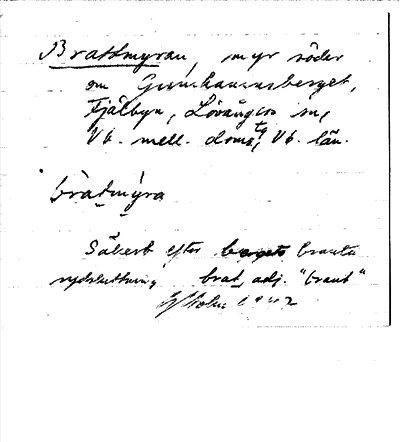 Brattmyran, myr söder
om Grundhamnsberget,
Fjälbyn, Lövångers sn,
Vb. mell. doms. tg, Vb. län.
bràtmýra
Säkert efter bergets branta
sydsluttning brat, adj. "brant"
E. Holm 1942